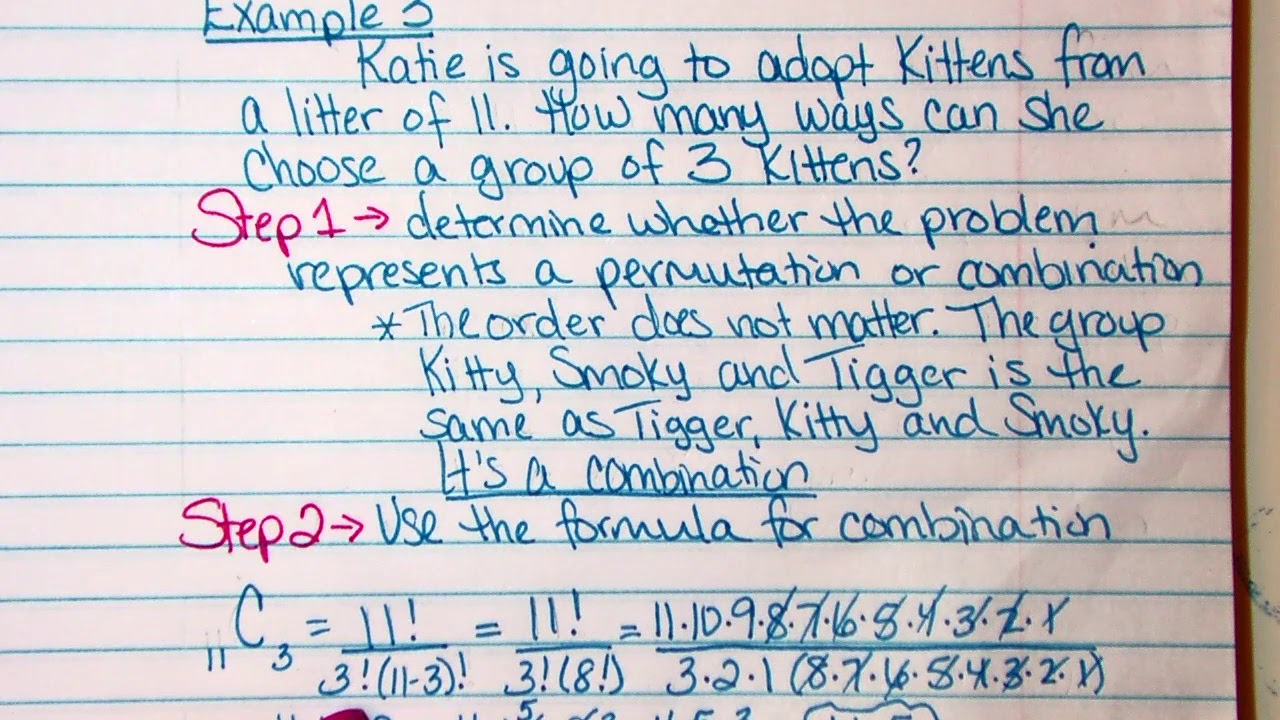 Example 3
Katie is going to adopt Kittens from
a litter of 11. How many ways can she
Choose a group of 3 Kittens?
Step 1 → determine whether the problem
represents a permutation or combination
* The order does not matter. The group
Kitty, Smoky and Tigger is the
same as Tigger, Kitty and Smoky.
It's a combination
Step 2 → Use the formula for combination
₁₁C₃ = 11!/3!(11-3)! = 11!/3!(8!) = 11·10·9·8·7·6·5·4·3·2·1/3·2·1(8·7·6·5·4·3·2·1)